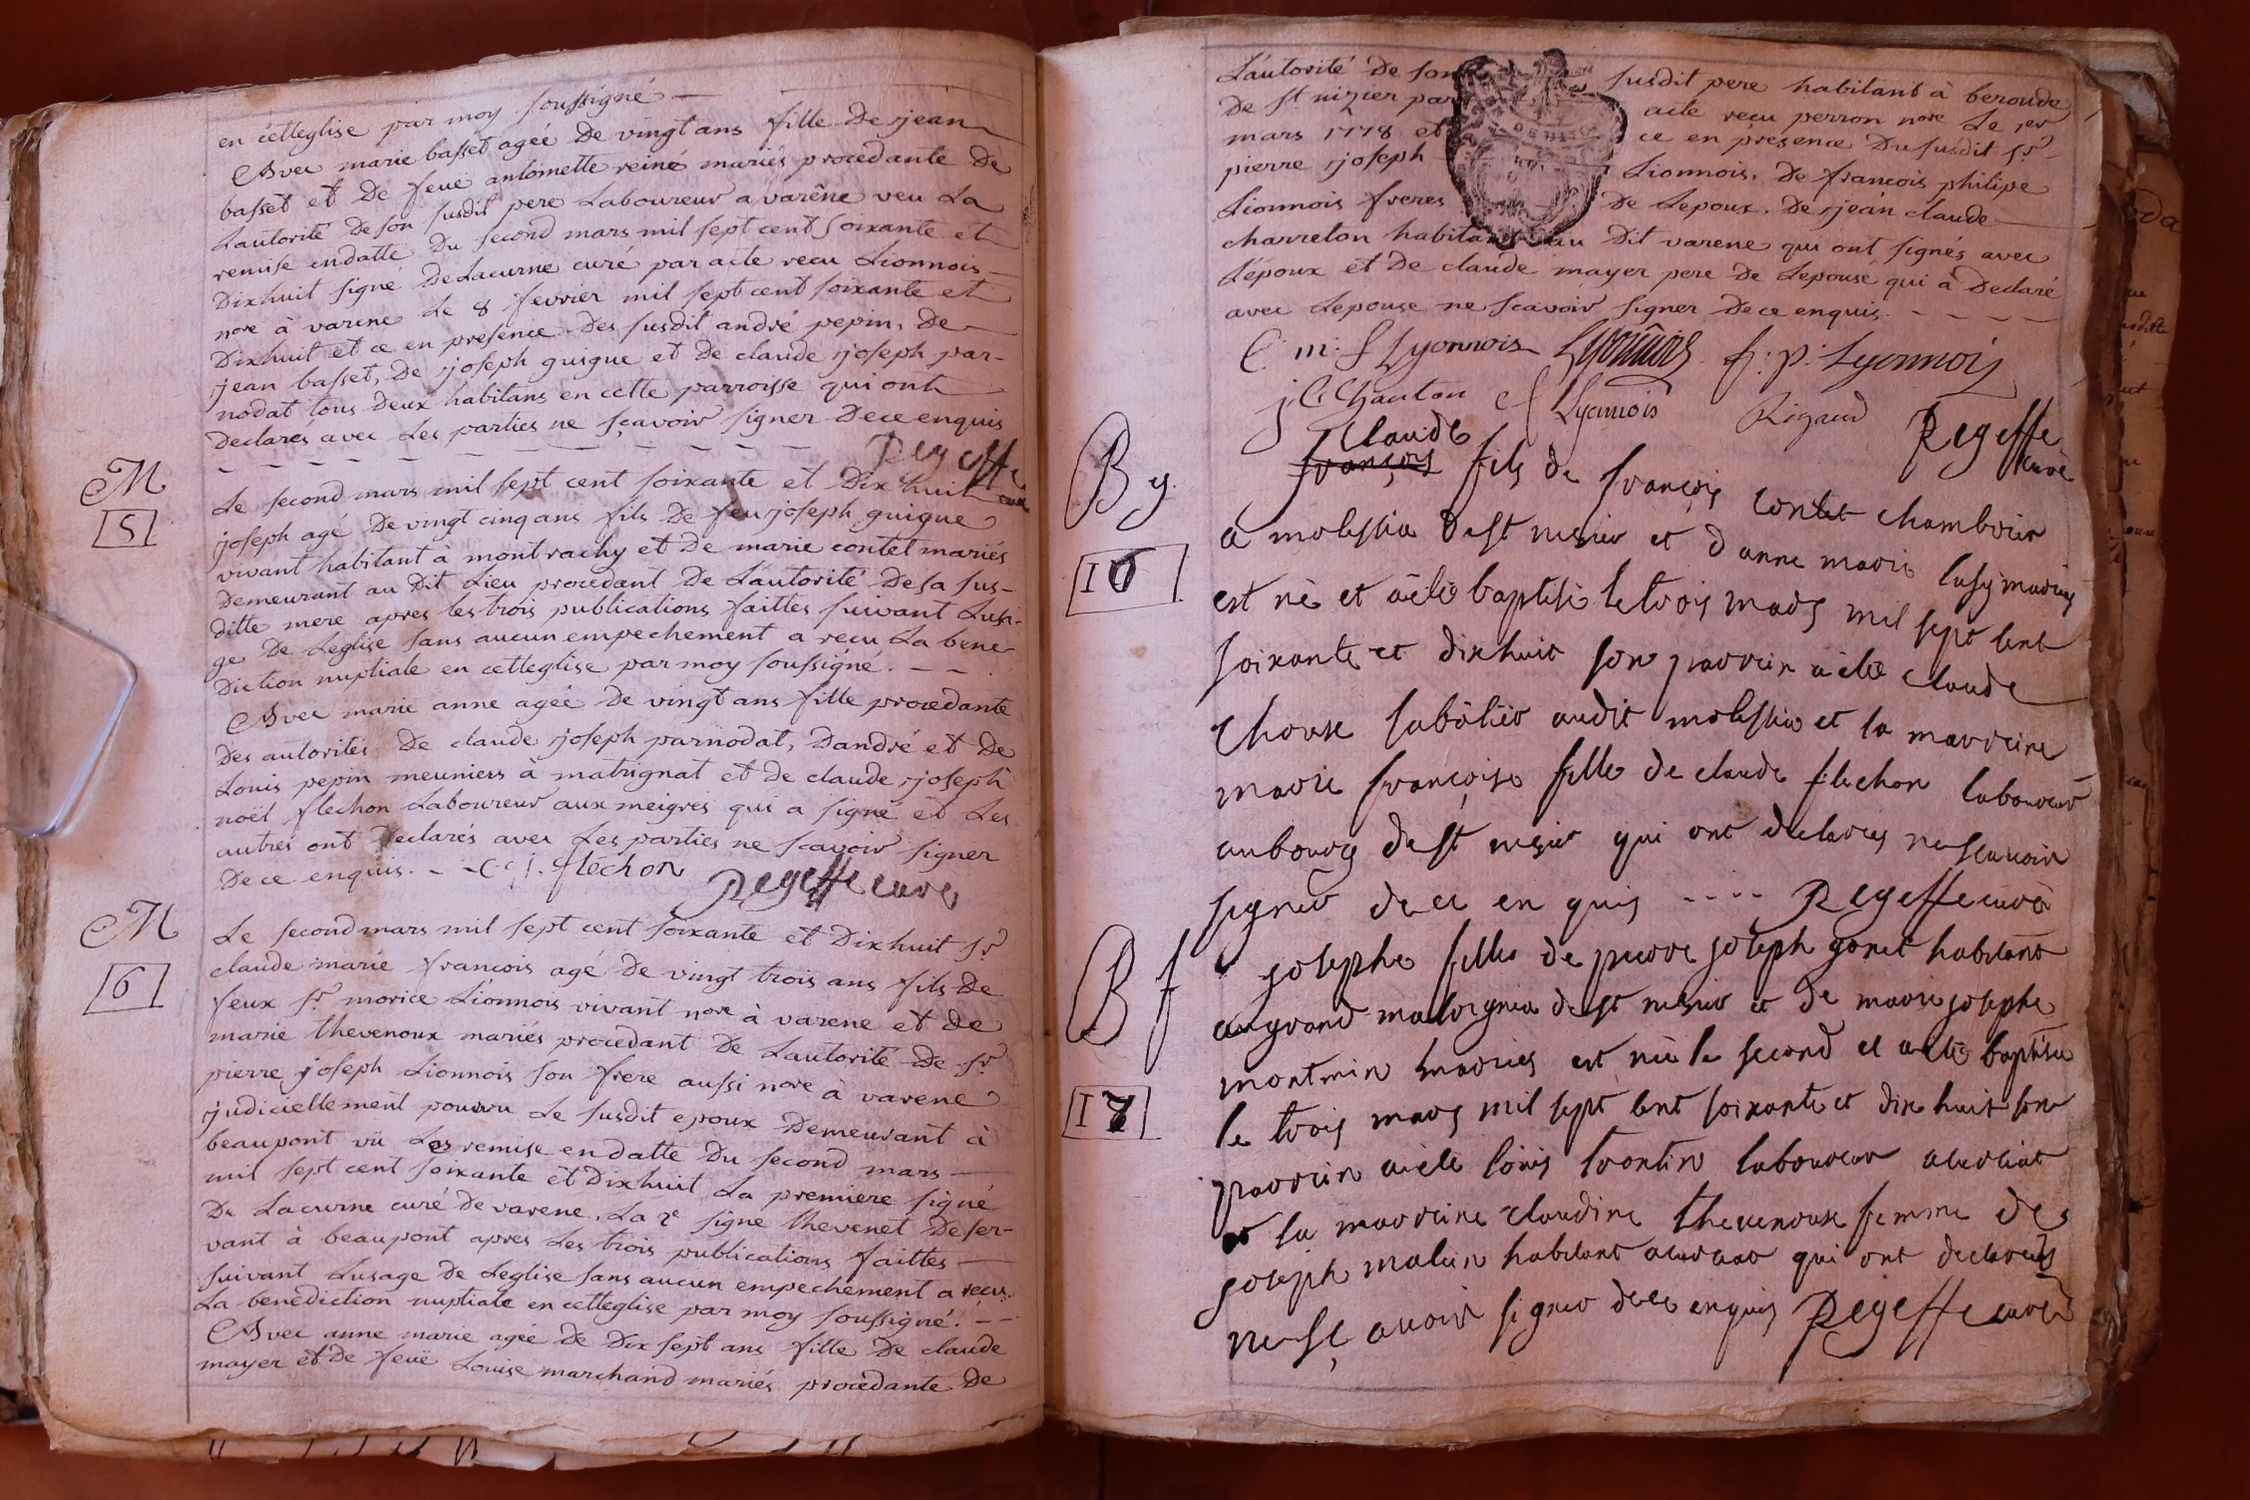 en cetteglise par moy soussigné —
Avec marie basset agée De vingt ans fille De jean
basset et De feue antoinette reine mariés procedante De
Lautorité De son susdit pere Laboureur a varêne veu La
remise endatte Du second mars mil sept cent soixante et
Dixhuit signé Delacurne curé par acte recu Lionnois
nore à varene Le 8 fevrier mil sept cent soixante et
Dixhuit et ce en presence Des susdit andré pepin, De
jean basset, De joseph guigue et de claude joseph par-
nodat tous Deux habitans en cette parroisse qui ont
Declarés avec Les parties ne sçavoir signer De ce enquis
Regeffe curé
M
5
Le second mars mil sept cent soixante et Dixhuit
joseph agé De vingt cinq ans fils De feu joseph guigue
vivant habitant à montrachy et De marie contet mariés
Demeurant au Dit Lieu procedant De Lautorité De sa sus-
ditte mere apres les trois publications faittes suivant Lusa-
ge De Leglise sans aucun empechement a recu La bene-
Diction nuptiale en cetteglise par moy soussigné. — —
Avec marie anne agée De vingt ans fille procedante
Des autorités De claude joseph parnodat, Dandré et De
Louis pepin meuniers à matrignat et de claude joseph
noël flechon Laboureur aux meigres qui a signé et Les
autres ont Declarés avec Les parties ne scavoir signer
De ce enquis. - - C. j. fléchon Regeffe curé
M
6
Le second mars mil sept cent soixante et Dixhuit Sr
claude marie francois agé De vingt trois ans fils De
feux Sr morice Lionnois vivant nore à varene et de
marie thevenoux mariés procedant De Lautorité De Sr
pierre joseph Lionnois son frere aussi nore à varene
judiciellement pouvu Le susdit epoux Demeurant à
beaupont vü Les remise en datte Du second mars
mil sept cent soixante et Dixhuit La premiere signé
De Lacurne curé de varene, La 2e signe thevenet Deser-
vant à beaupont apres Les trois publications faittes
suivant Lusage de Leglise sans aucun empechement a recu
La benediction nuptiale en cetteglise par moy soussigné. — —
Avec anne marie agée De Dix sept ans fille De claude
mayer et De feue Louise marchand mariés procedante De
Láutorité De son susdit pere habitant à beroude
De st nizier par acte recu perron nore Le 1er
mars 1778 et ce en presence Du susdit Sr
pierre joseph Lionnois. De françois philipe
Lionnois freres De Lepoux. De jean claude
charreton habitans au Dit varene qui ont signés avec
Lépoux et De claude mayer pere De Lepouse qui à Declaré
avec Lepouse ne scavoir signer De ce enquis. - - - -
C: m: f Lyonnois Lyonnois f: p: Lyonnois
j C Chareton Lyonnois Rigaud Regeffe curé
B g.
16
claude
françois fils de françois contet chambrier
a molissia de st nesier et d anne marie lasy mariés
est né et àété baptisé le trois mars mil sept cent
soixante et dixhuit son parrein àété claude
choux sabôtier audit molissia et la marreine
marie françoise fille de claude flechon laboureur
aubourg de st nesier qui ont declarés ne scavoir
signer de ce en quis ---- Regeffe curé
B f
17
josephe fille de pierre joseph gonet habitant
augrand malvignea de st nesier et de marie josephe
montmin mariés est née le second et a été baptisée
le trois mars mil sept cent soixante et dix huit son
parrein àété loüis trontin laboureur
et la marreine claudine thevenoux femme de
joseph malin habitant qui ont declarés
ne sçavoir signer de ce enquis Regeffe curé